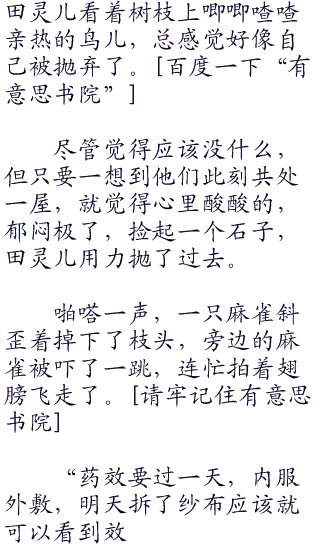 田灵儿看着树枝上唧唧喳喳
亲热的鸟儿，总感觉好像自
己被抛弃了。[百度一下“有
意思书院”]
尽管觉得应该没什么，
但只要一想到他们此刻共处
一屋，就觉得心里酸酸的，
郁闷极了，捡起一个石子，
田灵儿用力抛了过去。
啪嗒一声，一只麻雀斜
歪着掉下了枝头，旁边的麻
雀被吓了一跳，连忙拍着翅
膀飞走了。[请牢记住有意思
书院]
“药效要过一天，内服
外敷，明天拆了纱布应该就
可以看到效